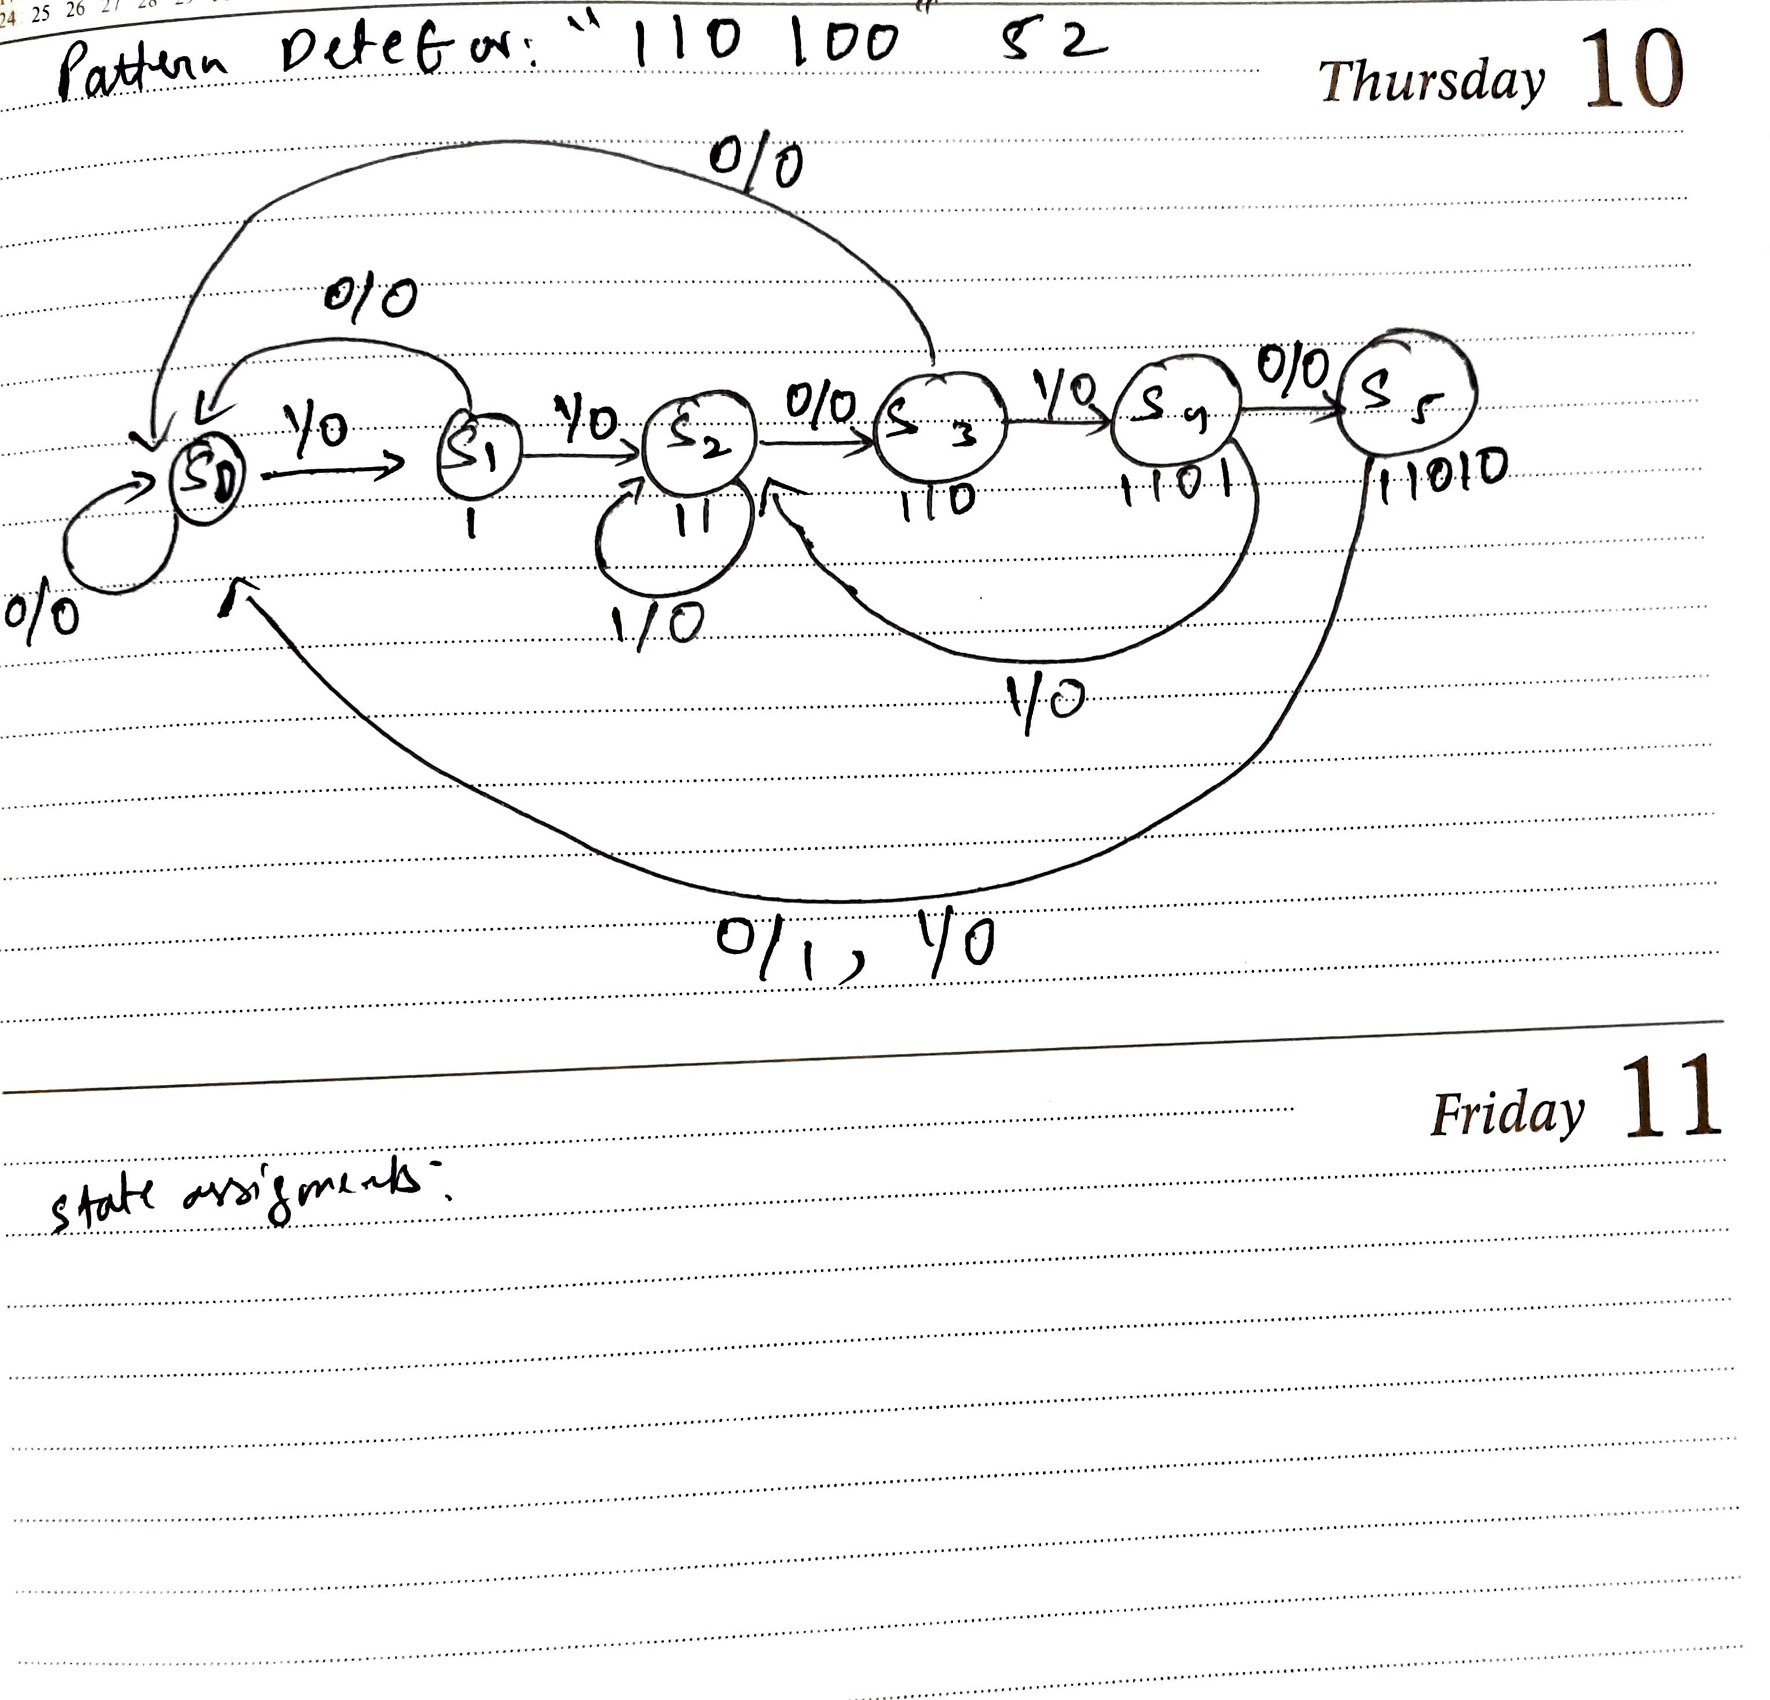 24 25 26 27 28
Pattern Detector: "110 100" 52
Thursday 10
0/0
0/0
0/0
1/0 1/0 0/0 1/0
S0 S1 S2 S3 S4 S5
1 11 110 1101 11010
0/0 1/0
1/0
0/1, 1/0
Friday 11
state assigments: